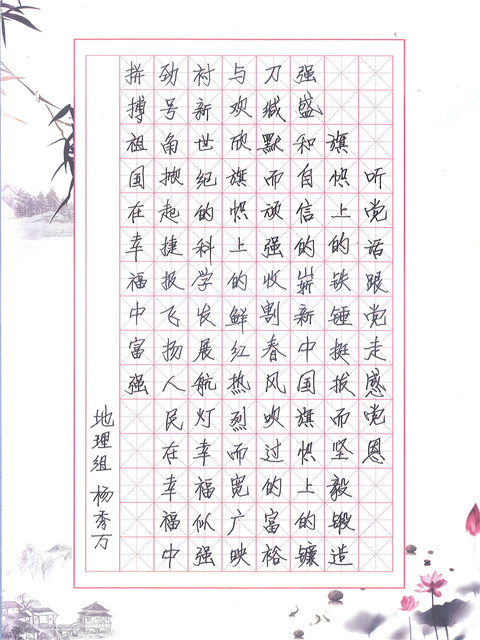 听党话跟党走感党恩
旗帜上的铁锤挺拔而坚毅锻造
强盛和自信的崭新中国旗帜上的镰
刀缄默而顽强收割春风吹过的富裕
与欢欣旗帜上的鲜红热烈而宽广映
衬新世纪的科学发展航灯幸福似强
劲号角掀起捷报飞扬人民在幸福中
拼搏祖国在幸福中富强
地理组 杨秀万